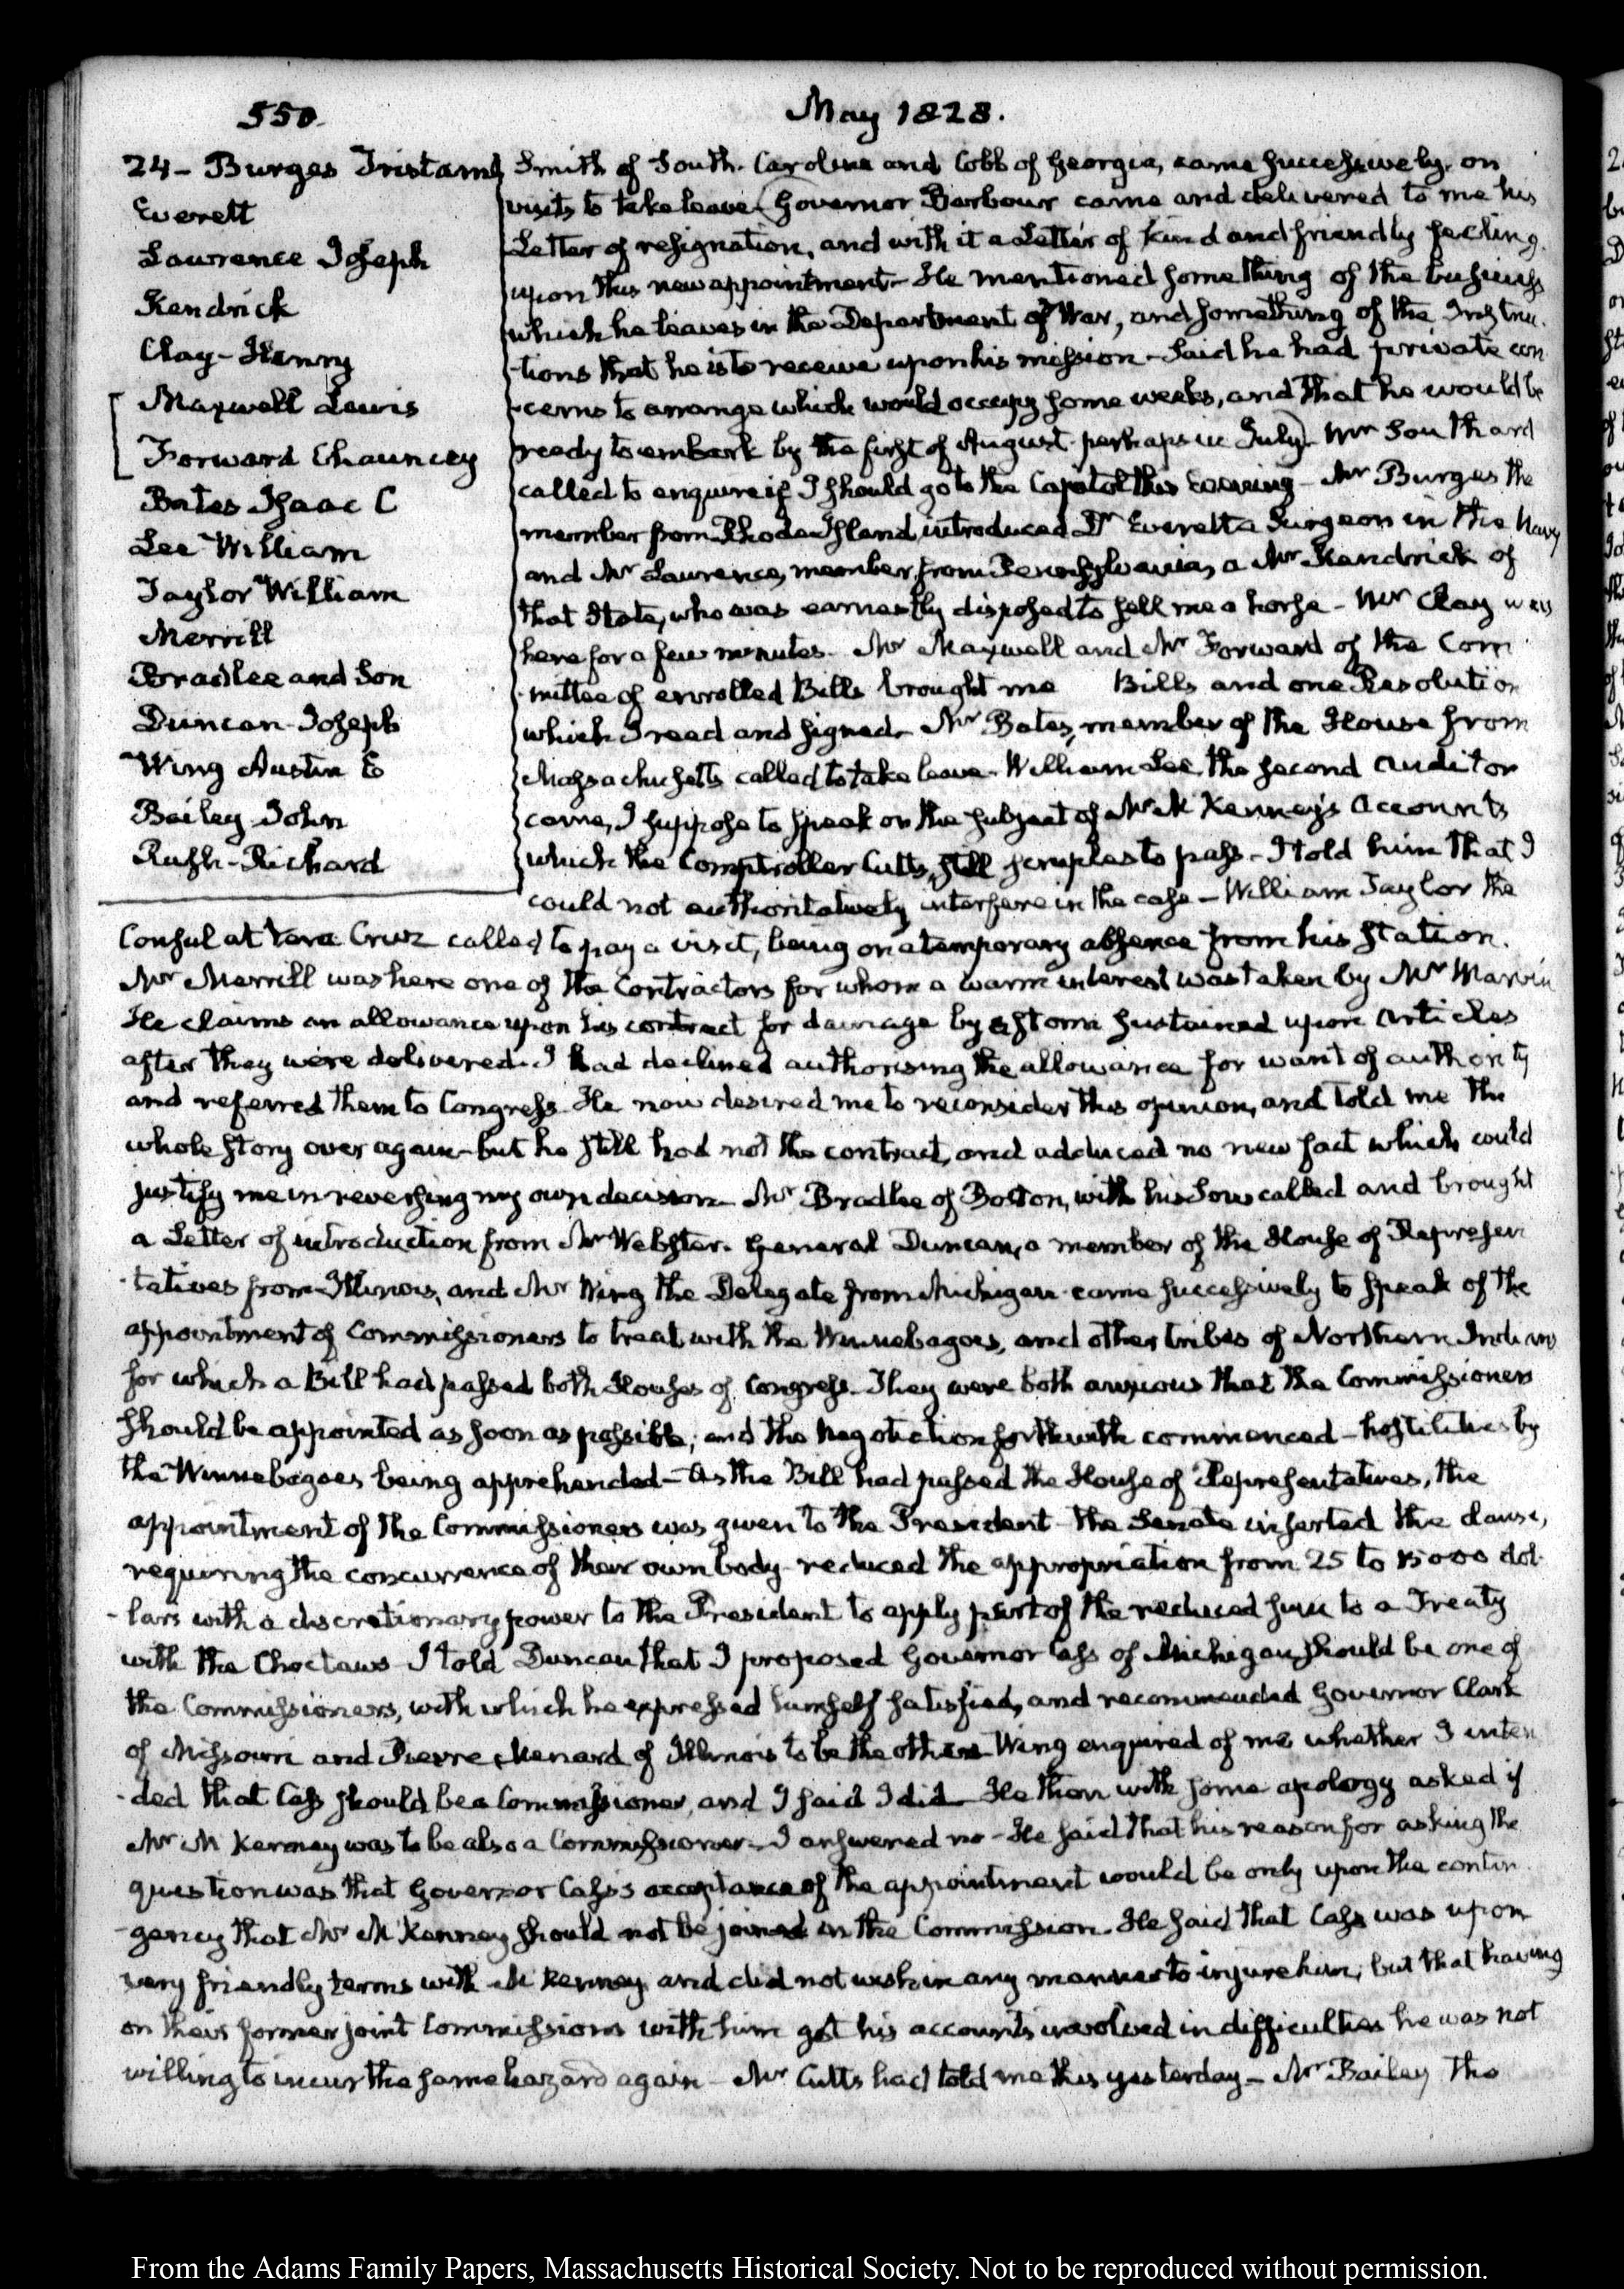 550.
May 1828.
24 - Burges Tristam
Everett
Lawrence Joseph
Kendrick
Clay - Henry
Maxwell Lewis
Forward Chauncey
Bates Isaac C
Lee William
Taylor William
Merrill
Bradlee and Son
Duncan Joseph
Wing Austin E
Bailey John
Rush - Richard
Smith of South-Carolina and Cobb of Georgia, came successively, on
visits to take leave. (Governor Barbour came and delivered to me his
Letter of resignation, and with it a Letter of kind and friendly feeling.
upon this new appointment - He mentioned something of the business
which he leaves in the Department of War, and something of the Instruc-
-tions that he is to receive upon his mission - Said he had private con
-cerns to arrange which would occupy some weeks, and that he would be
ready to embark by the first of August. perhaps in July). Mr Southard
called to enquire if I should go to the Capitol this Evening - Mr Burges the
member from Rhode-Island, introduced Dr Everett a Surgeon in the Navy
and Mr Lawrence, member from Pennsylvania, a Mr Kendrick of
that State, who was earnestly disposed to sell me a horse - Mr Clay was
here for a few minutes. Mr Maxwell and Mr Forward of the Com
-mittee of enrolled Bills brought me Bills and one Resolution
which I read and signed. Mr Bates, member of the House from
Massachusetts called to take leave. William Lee the second Auditor
came, I suppose to speak on the subject of Mr McKenney's Accounts
which the Comptroller Cutts, still scruples to pass - I told him that I
could not authoritatively interfere in the case - William Taylor the
Consul at Vera Cruz called to pay a visit, being on a temporary absence from his station.
Mr Merrill was here one of the Contractors for whom a warm interest was taken by Mr Marvin
He claims an allowance upon his contract for damage by a storm sustained upon articles
after they were delivered. I had declined authorising the allowance for want of authority
and referred them to Congress. He now desired me to reconsider this opinion, and told me the
whole story over again - but he still had not the contract, and adduced no new fact which could
justify me in reversing my own decision. Mr Bradlee of Boston, with his Son called and brought
a Letter of introduction from Mr Webster. General Duncan, a member of the House of Represen
-tatives from Illinois, and Mr Wing the Delegate from Michigan came successively to speak of the
appointment of Commissioners to treat with the Winnebagoes, and other tribes of Northern Indians
for which a Bill had passed both Houses of Congress. They were both anxious that the Commissioners
should be appointed as soon as possible; and the Negotiation forthwith commenced - hostilities by
the Winnebagoes being apprehended - As the Bill had passed the House of Representatives, the
appointment of the Commissioners was given to the President - the Senate inserted the clause,
requiring the concurrence of their own body - reduced the appropriation from 25 to 15000 dol-
-lars with a discretionary power to the President to apply part of the reduced sum to a Treaty
with the Choctaws - I told Duncan that I proposed Governor Cass of Michigan, should be one of
the Commissioners, with which he expressed himself satisfied, and recommended Governor Clark
of Missouri and Pierre Menard of Illinois to be the others - Wing enquired of me whether I inten
-ded that Cass should be a Commissioner, and I said I did - He then with some apology asked if
Mr McKenney was to be also a Commissioner - I answered no - He said that his reason for asking the
question was that Governor Cass's acceptance of the appointment would be only upon the contin
-gency that Mr McKenney should not be joined in the Commission. He said that Cass was upon
very friendly terms with McKenney and did not wish in any manner to injure him; but that having
on their former joint Commissions with him got his accounts involved in difficulties he was not
willing to incur the same hazard again - Mr Cutts had told me this yesterday - Mr Bailey the
From the Adams Family Papers, Massachusetts Historical Society. Not to be reproduced without permission.